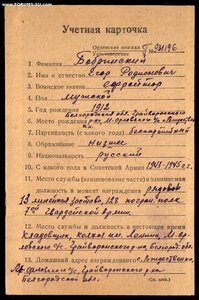 SAMMLER.RU
Учетная карточка
Орденская книжка Г №
1. Фамилия Бобринский
2. Имя и отчество Егор Родионович
3. Воинское звание ефрейтор
4. Пол мужской
5. Год рождения 1912
Белгородской обл. Грайворонского
6. Место рождения
7. Партийность (с какого года) Беспартийный
8. Образование Низшее
9. Национальность русский
10. С какого года в Советской Армии 1941-1945 г.
11. Место службы (наименование части) и занимаемая
должность в момент награждения рядовой
128 погран полк
7ой Гвардейской Армии
12. Место службы и должность в настоящее время
Кладовщик, колхоз им. Ленина,
Грайворонского р-на Белгор. обл.
13. Домашний адрес награжденного
Грайворонского р-на
Белгородской обл.